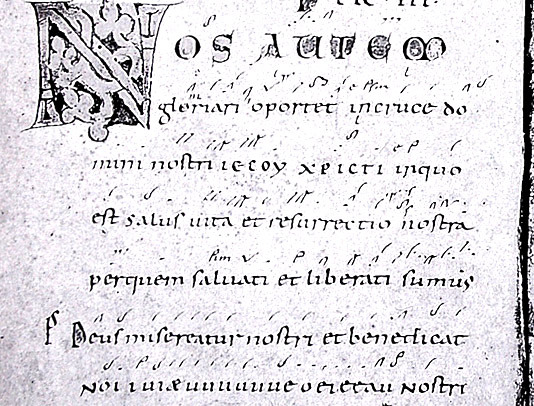 NOS AUTEM
gloriari oportet in cruce do
mini nostri iecoy xpicti in quo
est salus uita et resurrectio nostra
per quem saluati et liberati sumus
Ps Deus misereatur nostri et benedicat
nostri